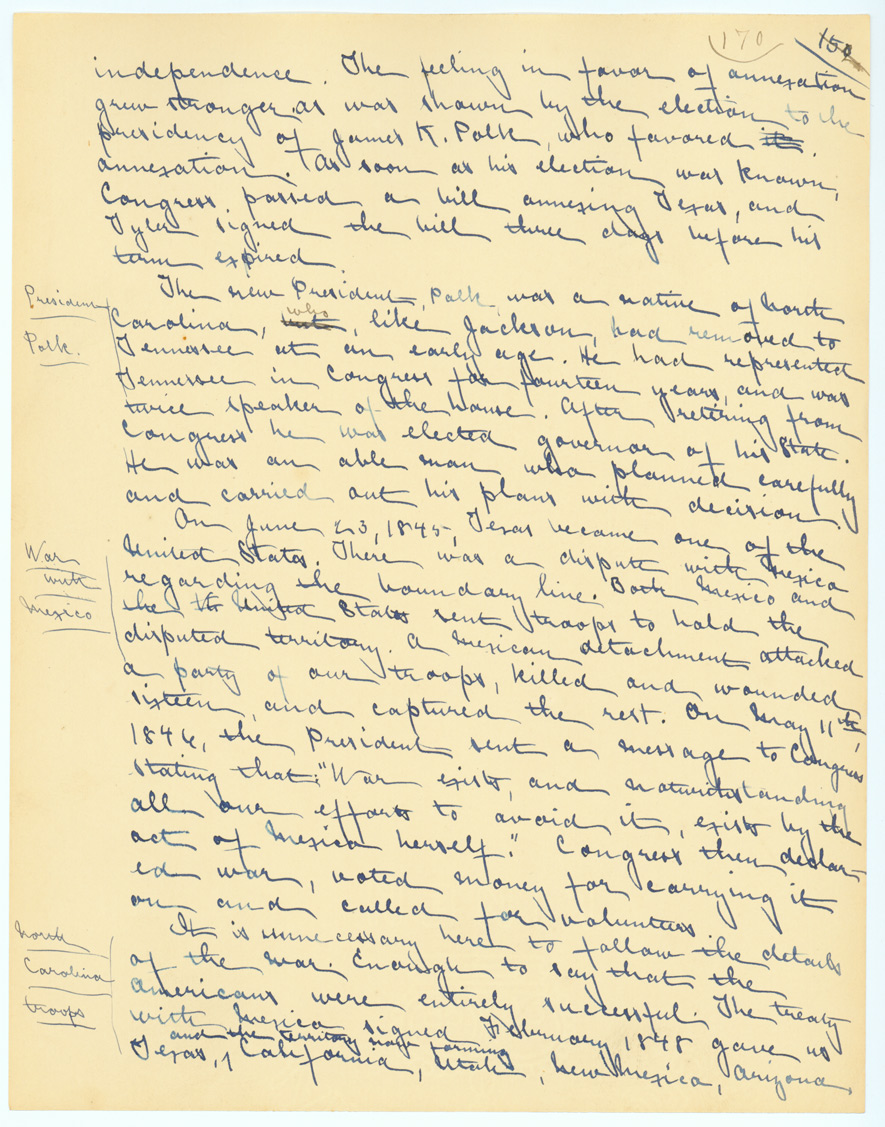 170 150
independence. The feeling in favor of annexation
grew stronger as was shown by the election to the
presidency of James K. Polk, who favored it
annexation. As soon as his election was known,
Congress passed a bill annexing Texas, and
Tyler signed the bill three days before his
term expired.
President
Polk.
The new President, Polk, was a native of North
who
Carolina, , like Jackson, had removed to
Tennessee at an early age. He had represented
Tennessee in Congress for fourteen years, and was
twice speaker of the house. After retiring from
Congress he was elected governor of his State.
He was an able man who planned carefully
and carried out his plans with decision.
War
with
Mexico
On June 23, 1845, Texas became one of the
United States. There was a dispute with Mexico
regarding the boundary line. Both Mexico and
the th United States sent troops to hold the
disputed territory. A Mexican detachment attacked
a party of our troops, killed and wounded
sixteen, and captured the rest. On May 11th,
1846, the President sent a message to Congress
stating that: "War exists, and notwithstanding
all our efforts to avoid it, exists by the
act of Mexico herself." Congress then declar-
ed war, voted money for carrying it
on and called for volunteers
North
Carolina
troops
It is unnecessary here to follow the details
of the war. Enough to say that the
Americans were entirely successful. The treaty
with Mexico signed February 1848 gave us
and the territory now forming
Texas, California, Utah, New Mexico, Arizona,